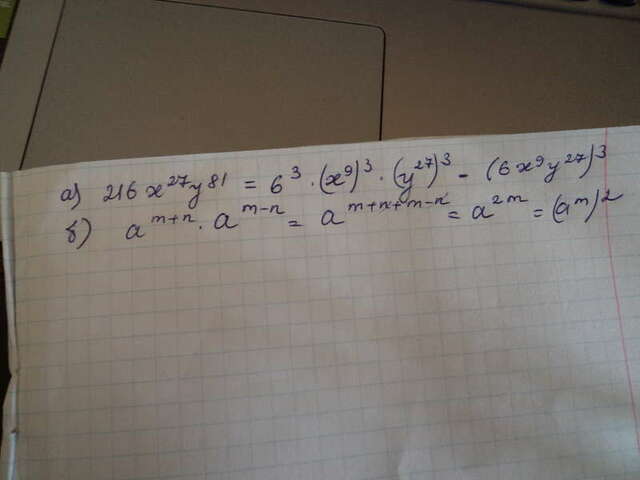 а) 216x²⁷y⁸¹ = 6³·(x⁹)³·(y²⁷)³ - (6x⁹y²⁷)³
б) aᵐ⁺ⁿ·aᵐ⁻ⁿ = aᵐ⁺ⁿ⁺ᵐ⁻ⁿ = a²ᵐ = (aᵐ)²